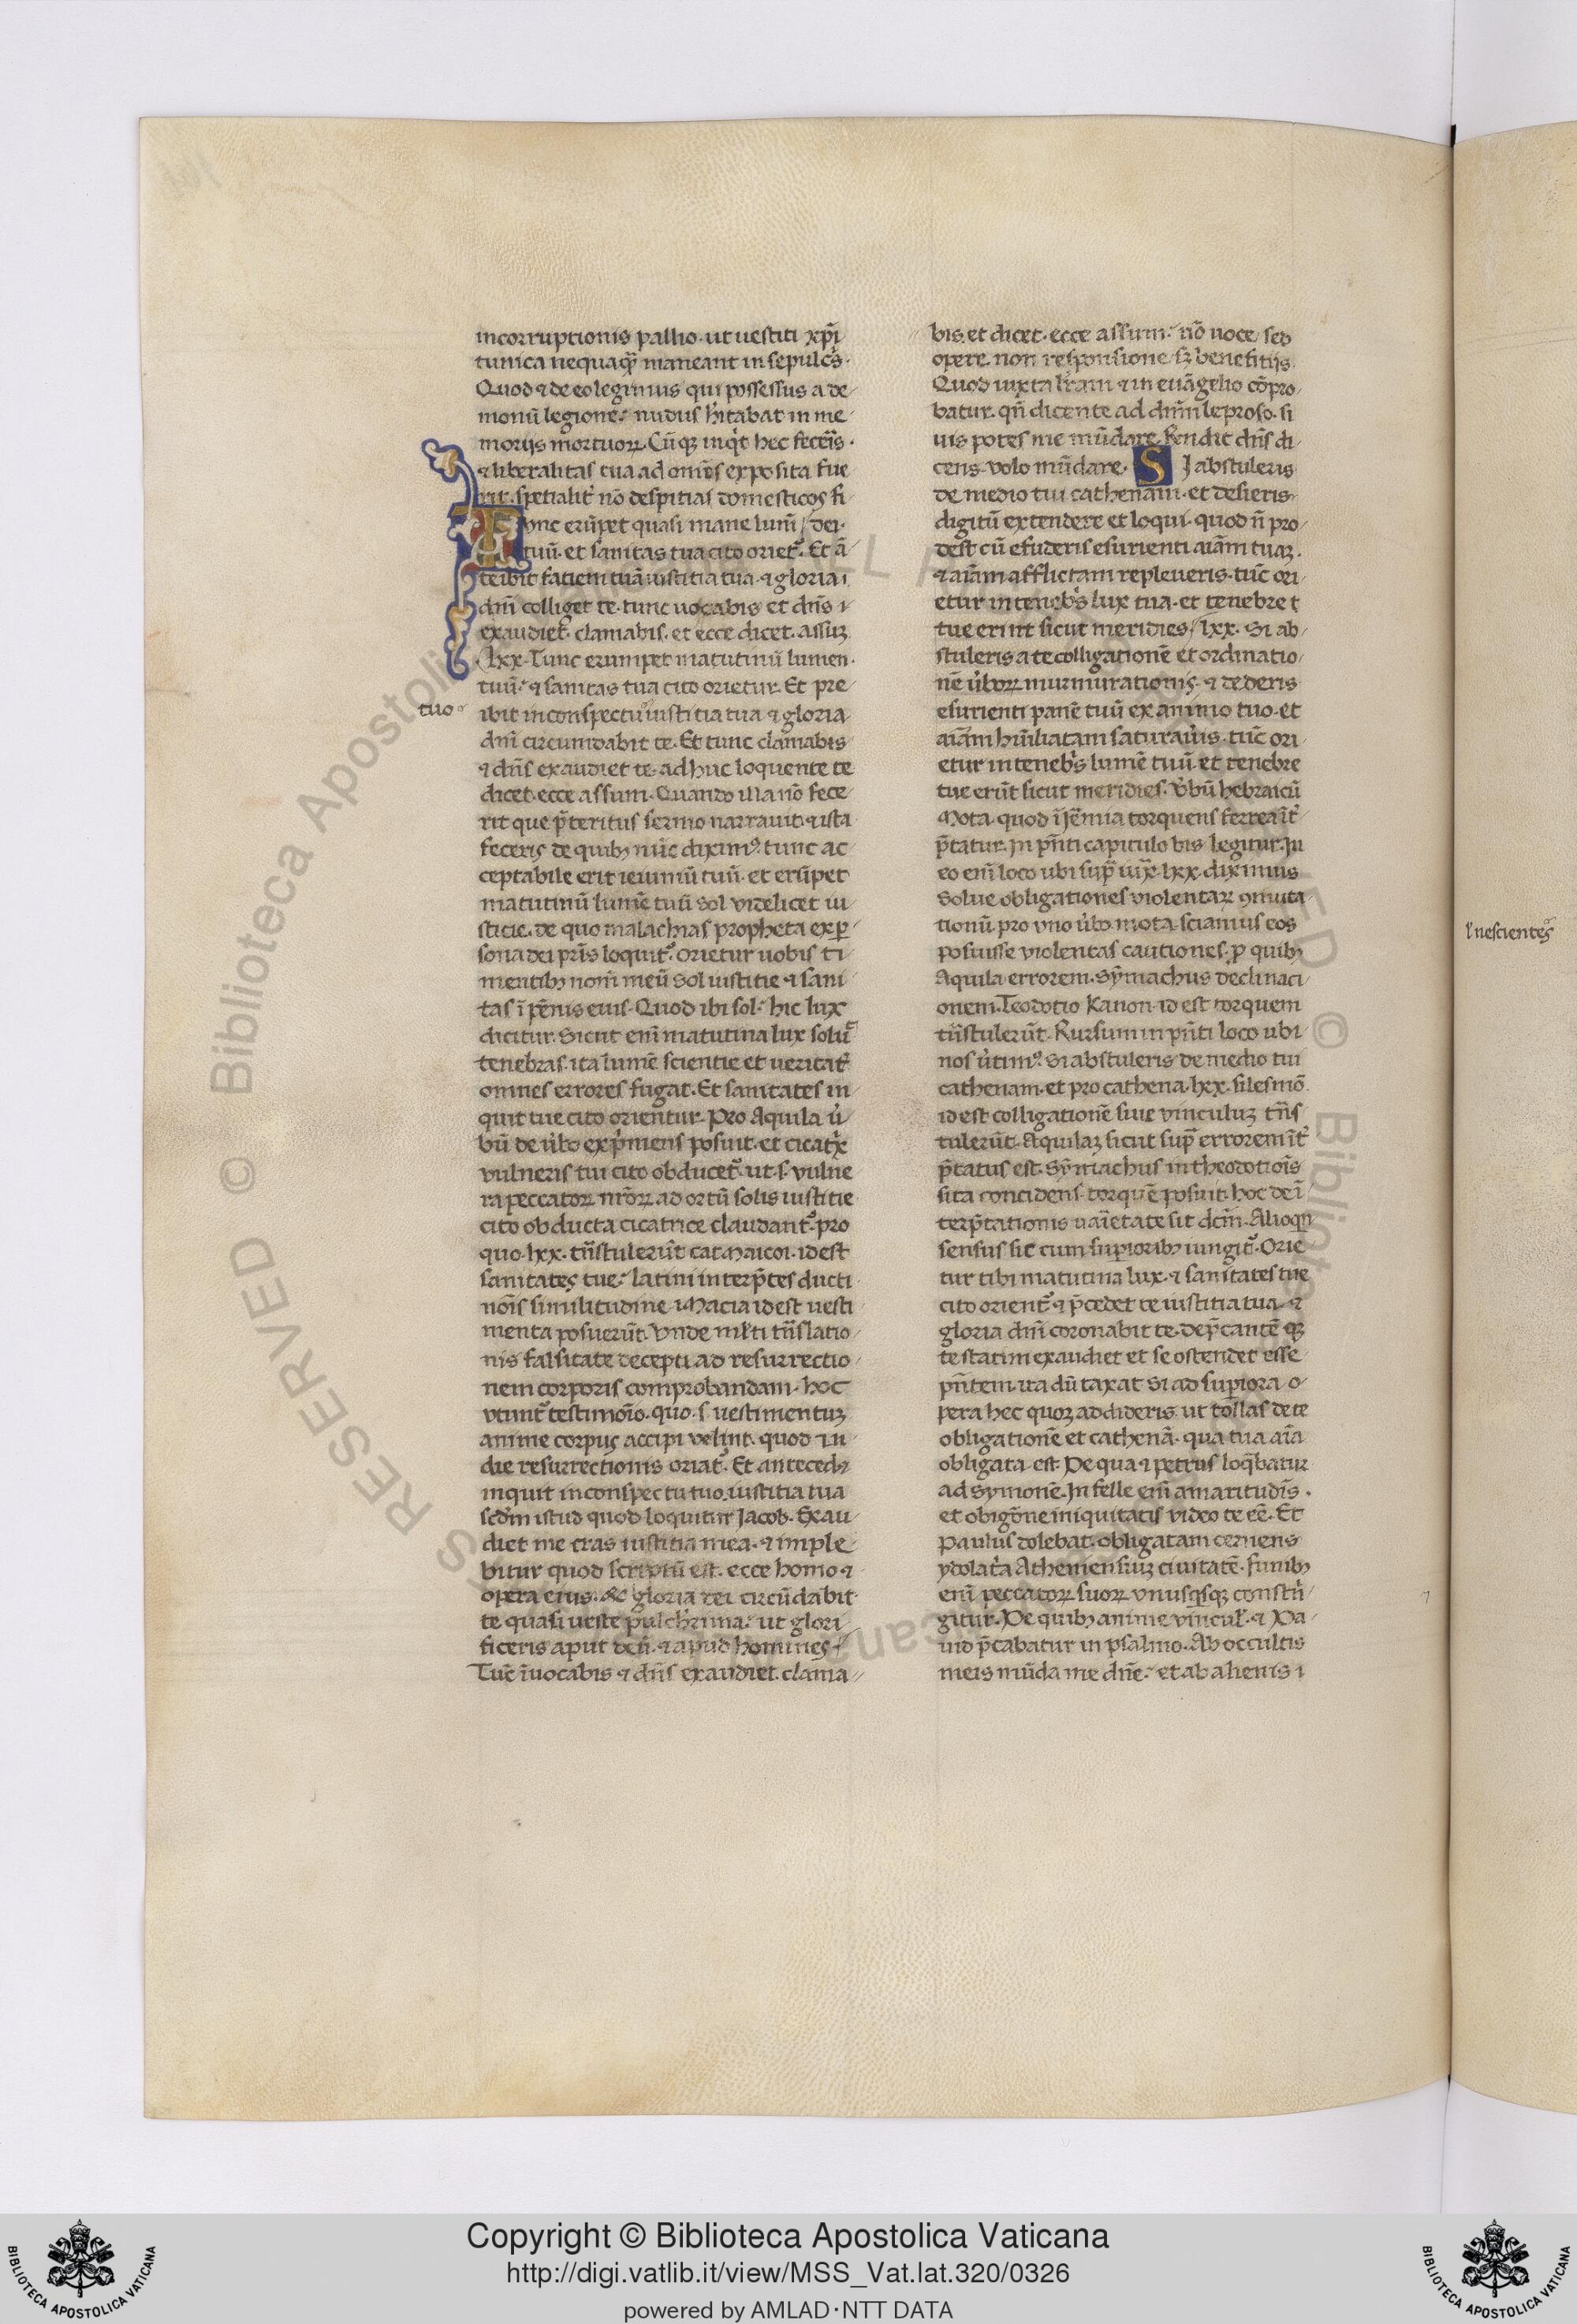 incorruptionis pallio. ut uestiti xp̄i
tunica nequaqꝫ maneant in sepulcs̄.
Quod ⁊ de eo legimus qui possessus a de
monū legione: nudus h̄itabat in me
morijs mortuoꝝ. Cū qꝫ inqͥt hec fecēis.
⁊ liberalitas tua ad om̄s exposita fue
rit. spetialit̓ nō despitias domesticos fi
Tunc erūpet quasi mane lum̄ dei.
tuū. et sanitas tua cito oriet᷑. Et ā
teibit fatiem tuā iustitia tua. ⁊ gloria
dn̄i colliget te. tunc uocabis et dn̄s
exaudiet. clamabis. et ecce dicet. assuꝫ
lxx. Tunc erumpet matutinū lumen
tuū: ⁊ sanitas tua cito orietur. Et pre
tuo
ibit in conspectu iustitia tua ⁊ gloria
dn̄i circumdabit te. Et tunc clamabis
⁊ dn̄s exaudiet te. adhuc loquente te
dicet. ecce assum. Quando illa nō fece
rit que p̄teritus sermo narrauit. ⁊ ista
feceris de quibꝫ nūc diximꝰ. tunc ac
ceptabile erit ieiuniū tuū. et erūpet
matutinū lumē tuū sol videlicet iu
sticie. de quo malachias propheta ex ꝑ
sona dei pr̄is loquit᷑. Orietur uobis ti
mentibꝫ nom̄ meū sol iustitie ⁊ sani
tas ī pēnis eius. Quod ibi sol: hic lux
dicitur. Sicut enī matutina lux solū
tenebras. ita lumē scientie et ueritat̓
omnes errores fugat. Et sanitates in
quit tue cito orientur. Pro Aquila u̓
bū de u̓bo exp̓mens posuit. et cicatͥx
vulneris tui cito obducet᷑. ut .s. vulne
ra peccatoꝝ nr̄oꝝ ad ortū solis iustitie
cito obducta cicatrice claudant᷑. pro
quo lxx. tn̄stulerūt cat naicoi. id est
sanitates tue: latini interp̄tes ducti
nōis similitudine imacia id est uesti
menta posuerūt. Vnde ml̄ti tn̄slatio
nis falsitate decepti ad resurrectio
nem corporis comprobandam. hoc
vtunt᷑ testimōio. quo .s. uestimentuꝫ
anime corpus accipi velint. quod in
die resurrectionis oriat᷑. Et antecedꝫ
inquit in conspectu tuo iustitia tua
scd̄m istud quod loquitur Jacob. Exau
diet me cras iustitia mea. ⁊ imple
bitur quod scriptū est. ecce homo ⁊
opera eius. &c gloria dei circūdabit
te quasi ueste pulcherrima: ut glori
ficeris aput deū. ⁊ apud homines
Tūc īuocabis ⁊ dn̄s exaudiet. clama
bis. et dicet. ecce assum: nō uoce sed
opere. non responsione sꝫ benefitijs.
Quod iuxta lr̄am ⁊ in euāgelio cōpro
batur. qn̄ dicente ad dn̄m leproso. si
uis potes me mūdare. Rendit dn̄s di
cens. volo mūdare. SI abstuleris
de medio tui cathenam. et desieris
digitū extendere et loqui. quod n̄ pro
dest cū efuderis esurienti aīam tuaꝫ.
⁊ aīam afflictam repleueris. tūc ori
etur in teneb̓s lux tua. et tenebre
tue erunt sicut meridies. lxx. Si ab
stuleris a te colligationē et ordinatio
nē u̓boꝝ murmurationis. ⁊ dederis
esurienti panē tuū ex animo tuo. et
aīam hūiliatam saturau̓is. tūc ori
etur in teneb̓s lumē tuū. et tenebre
tue erūt sicut meridies. v̓bū hebraicū
Mota quod ī Jēmia torquens ferrea īt̓
p̄tatur. In pn̄ti capitulo bis legitur. In
eo enī loco ubi sup̄ iux̄ lxx. diximus
Solue obligationes violentaꝝ ꝯmuta
tionū. pro vno u̓bo mota. sciamus eos
posuisse violentas cautiones. ꝓ quibꝫ
Aquila errorem. Sȳmachus declinaci
onem. Teodotio Kanon. id est torquem
tn̄stulerūt. Rursum in pn̄ti loco ubi
nos u̓timꝰ. Si abstuleris de medio tui
cathenam. et pro cathena. lxx. silesmō.
id est colligationē siue vinculuꝫ tn̄s
tulerūt. Aquilaꝫ sicut sup̄ errorem īt̓
p̄tatus est. Sȳmachus in theodotiōis
sita concidens torquē posuit. hoc de ī
terp̄tationis uaīetate sit dc̄m. Alioqn
sensus sic cum supioribꝫ iungit᷑. Orie
tur tibi matutina lux. ⁊ sanitates tue
cito orient᷑. ⁊ p̄cedet te iustitia tua. ⁊
gloria dn̄i coronabit te. dep̄cantē qꝫ
te statim exaudiet et se ostendet esse
pn̄tem. ita dū taxat si ad supiora o
pera hec quoꝫ addideris. ut tollas de te
obligationē et cathenā. qua tua aīa
obligata est. De qua ⁊ petrus loq̄batur
ad Symonē. In felle enī amaritudīs.
et obigōne iniquitatis video te eē. Et
Paulus dolebat. obligatam cernens
ydolat̓a Atheniensiuꝫ ciuitatē. funibꝫ
enī peccatoꝝ suoꝝ vnusqͥsqꝫ constͥn
gitur. De quibꝫ anime vincul̓. ⁊ Da
uid p̄cabatur in psalmo. Ab occultis
meis mūda me dn̄e: et ab alienis
l' nescientes
Copyright © Biblioteca Apostolica Vaticana
http://digi.vatlib.it/view/MSS_Vat.lat.320/0326
powered by AMLAD·NTT DATA
BIBLIOTECA APOSTOLICA VATICANA
BIBLIOTECA APOSTOLICA VATICANA